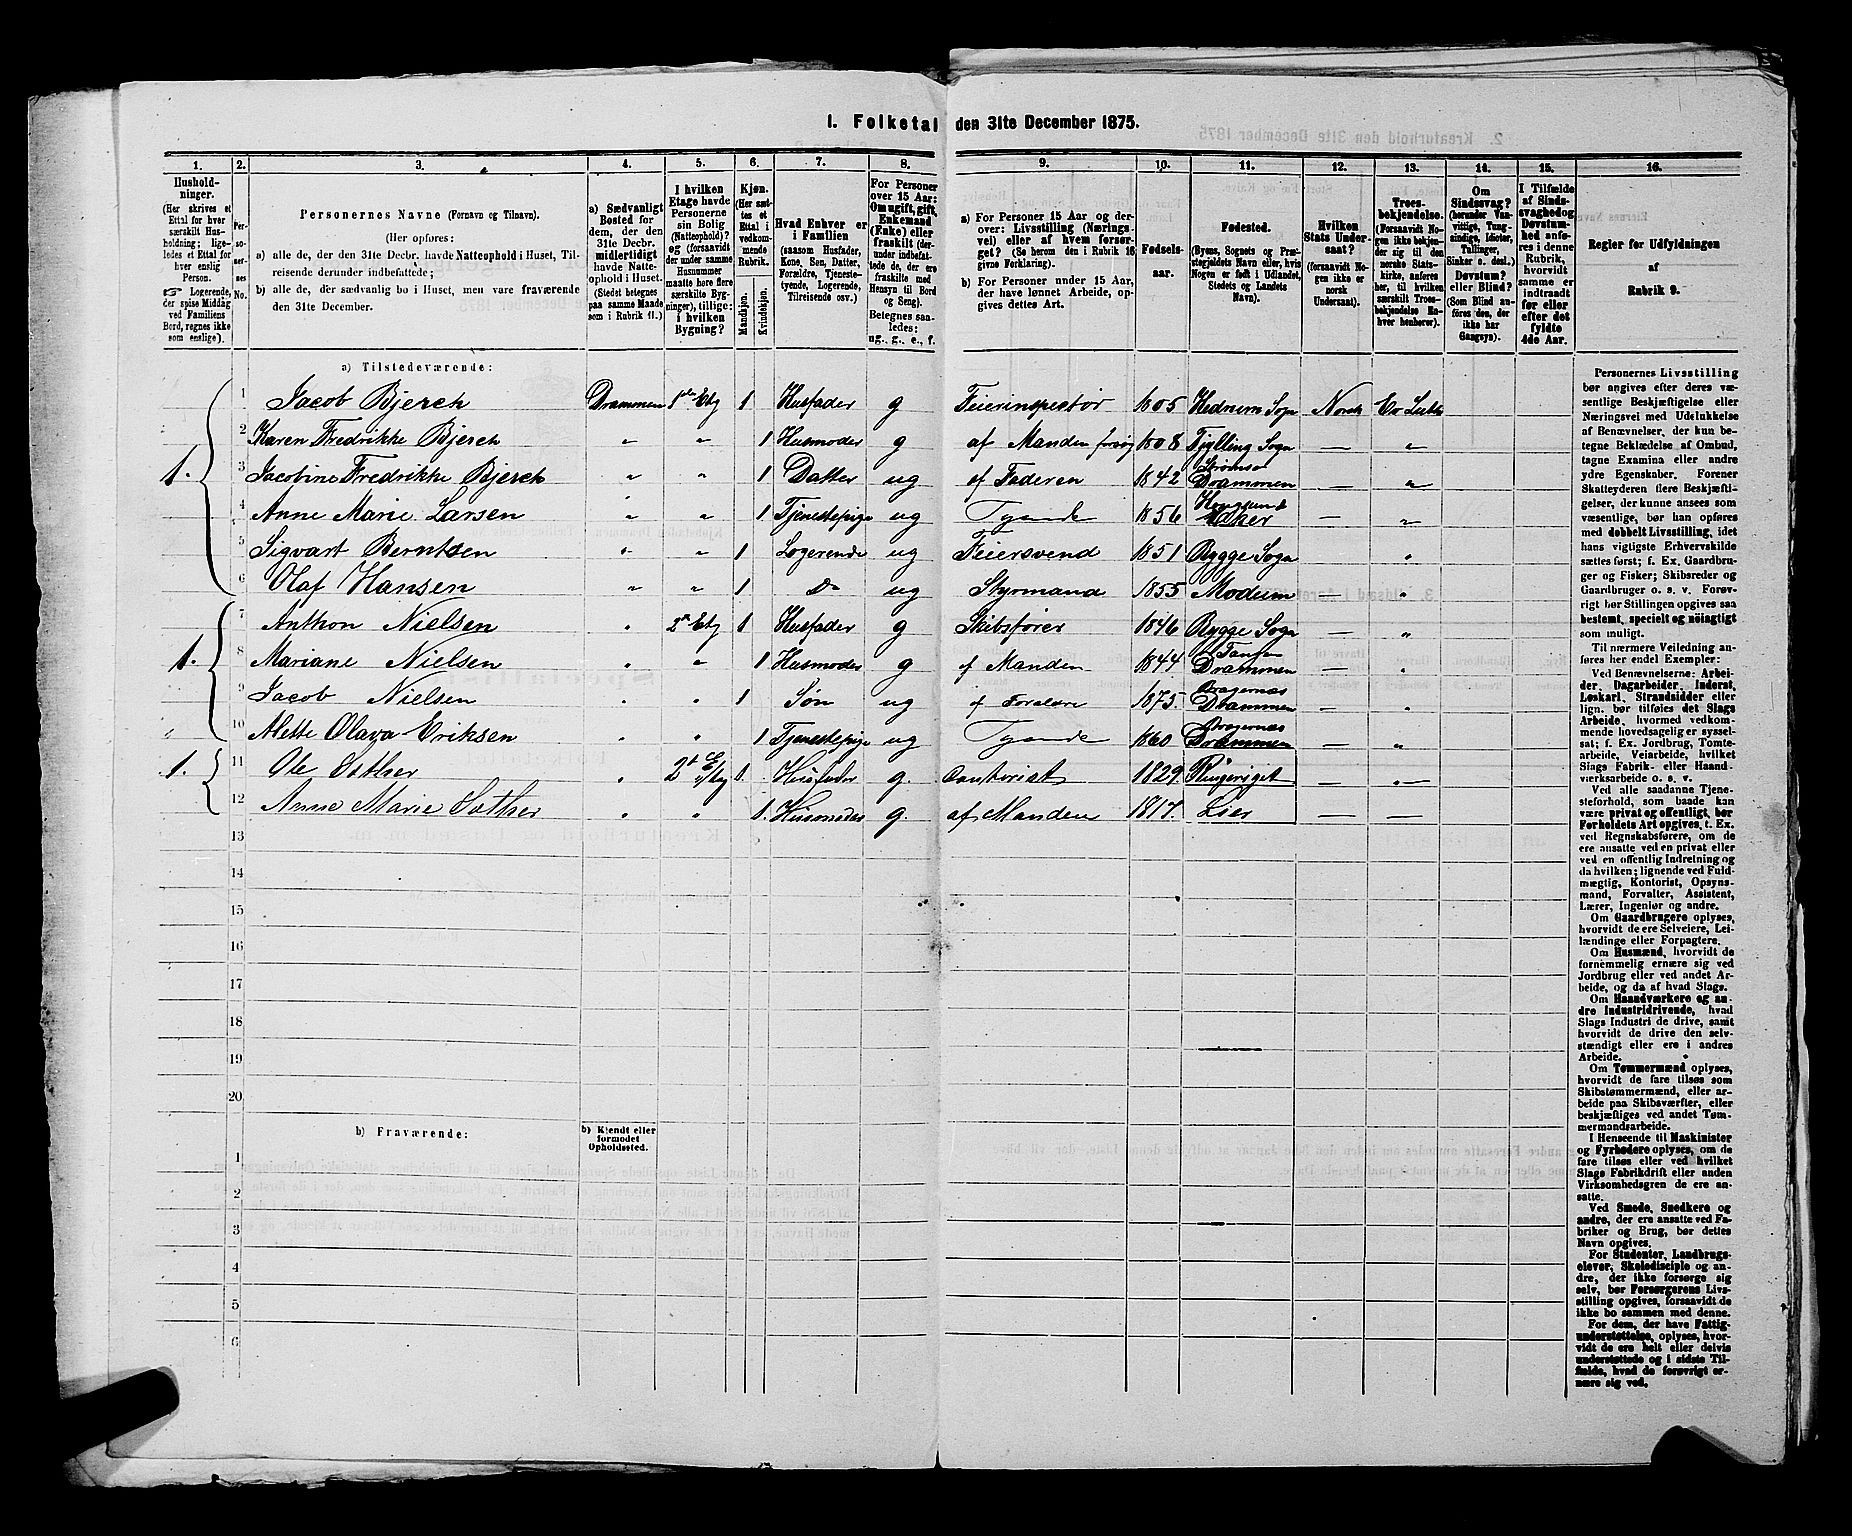 1. Folketal den 31te December 1875.
1. 2. 3. 4. 5. 6. 7. 8. 9. 10. 11. 12. 13. 14. 15. 16.
Hushold-
ninger.
(Her skrives et
Ettal for hver
særskilt Hus-
holdning; lige-
ledes et Ettal
for hver enslig
Person.
☞ Logerende,
der spise Middag
ved Familiens
Bord, regnes ikke
som enslige).
Per-
so-
ner-
nes
No.
Personernes Navne (Fornavn og Tilnavn).
(Her opføres:
a) alle de, der den 31te Decbr. havde Natteophold i Huset, Til-
reisende derunder indbefattede;
b) alle de, der sædvanlig bo i Huset, men vare fraværende
den 31te December.
a) Sædvanligt
Bosted for
dem, der den
31te Decbr.
midlertidigt
havde Natte-
ophold i Huset.
(Stedet betegnes
paa samme Maade
som i Rubrik 11.)
I hvilken
Etage havde
Personerne
sin Bolig
(Natteophold)?
og (forsaavidt
der under samme
Husnummer
maatte høre flere
særskilte Byg-
ninger), tillige:
i hvilken
Bygning?
Kjøn.
(Her sæt-
tes et
Ettal i
vedkom-
mende
Rubrik.
Mandkjøn.
Kvindekjøn.
Hvad Enhver er
i Familien
(saasom Husfader,
Kone, Søn, Datter,
Forældre, Tjeneste-
tyende, Logerende,
Tilreisende osv.)
For Personer
over 15 Aar:
Om ugift, gift,
Enkemand
(Enke) eller
fraskilt (der-
under indbefat-
tede de, der ere
fraskilte med
Hensyn til Bord
og Seng).
Betegnes saa-
ledes:
ug., g., e., f.
a) For Personer 15 Aar og der-
over: Livsstilling (Nærings-
vei) eller af hvem forsør-
get? (Se herom den i Rubrik 16
givne Forklaring).
b) For Personer under 15 Aar,
der have lønnet Arbeide, op-
gives dettes Art.
Fødsels-
aar.
Fødested.
(Byens, Sognets og Præ-
stegjeldets Navn eller, hvis
Nogen er født i Udlandet,
Stedets og Landets
Navn).
Hvilken
Stats Under-
saat?
(forsaavidt No-
gen ikke er
norsk
Undersaat).
Troes-
bekjendelse.
(Forsaavidt No-
gen ikke bekjen-
der sig til den
norske Stats-
kirke, anføres
her, til hvilken
særskilt Troes-
bekjendelse En-
hver henhører).
Om
Sindssvag?
(herunder Van-
vittige, Tung-
sindige, Idioter,
Tullinger,
Sinker o. desl.)
Døvstum?
eller Blind?
(Som Blind an-
føres den, der
ikke har
Gangsyn).
I Tilfælde
af Sinds-
svaghed og
Døvstum-
hed anfø-
res i denne
Rubrik,
hvorvidt
samme er
indtraadt
før eller
efter det
fyldte
4de Aar.
Regler for Udfyldningen
af
Rubrik 9.
a) Tilstedeværende:
1. 1 Jacob Bjerch Drammen 1ste Etg 1 Husfader g Feierinspectør 1805 Hednum Sogn Norsk Ev Luth
2 Karen Fredrikke Bjerch „ „ 1 Husmoder g af Manden forsøg 1808 Fjylling Sogn — „
3 Jacobine Fredrikke Bjerch „ „ 1 Datter ug af Faderen 1842 Strømsø Drammen — „
4 Anne Marie Larsen „ „ 1 Tjenestepige ug Tyende 1856 Hougsund Eker — „
5 Sigvart Berntsen „ „ 1 Logerende ug Feiersvend 1851 Rygge Sogn „
6 Olaf Hansen „ „ 1 Do ug Styrmand 1855 Modum — „
1. 7 Anthon Nielsen „ 2n Etg 1 Husfader g Skibsfører 1846 Rygge Sogn — „
8 Mariane Nielsen „ „ 1 Husmoder g af Manden 1844 Tangen Drammen —
9 Jacob Nielsen „ „ 1 Søn ug af Forældre 1875. Bragernæs Drammen — „
10 Mette Olava Eriksen „ „ 1 Tjenestepige ug Tyende 1860 Bragernæs Drammen — „
1. 11 Ole Sæther „ 2t Etg 1. Husfader g. Contorist 1829. Ringeriget — „
12 Anne Marie Sæther „ „ 1. Husmoder g. af Manden 1817. Lier — —
13
14
15
16
17
18
19
20
b) Fraværende:
b) Kjendt eller
formodet
Opholdssted.
1
2
3
4
5
6
Personernes Livsstilling
bør angives efter deres væ-
sentlige Beskjæftigelse eller
Næringsvei med Udelukkelse
af Benævnelser, der kun be-
tegne Beklædelse af Ombud,
tagne Examina eller andre
ydre Egenskaber. Forener
Skatteyderen flere Beskjæfti-
gelser, der kunne ansees som
væsentlige, bør han opføres
med dobbelt Livsstilling, idet
hans vigtigste Erhvervskilde
sættes først; f. Ex. Gaardbru-
ger og Fisker; Skibsreder og
Gaardbruger o. s. v. Forøv-
rigt bør Stillingen opgives saa
bestemt, specielt og nøiagtigt
som muligt.
Til nærmere Veiledning an-
føres her endel Exempler:
Ved Benævnelserne: Arbei-
der, Dagarbeider, Inderst,
Løskarl, Strandsidder eller
lign. bør tilføies det Slags
Arbeide, hvormed vedkom-
mende hovedsagelig er syssel-
sat; f. Ex. Jordbrug, Tomte-
arbeide, Veiarbeide, hvilket
Slags Fabrik- eller Haand-
værksarbeide o. s. v.
Ved alle saadanne Tjene-
steforhold, som baade kan
være privat og offentligt, bør
Forholdets Art opgives, t. Ex.
ved Regnskabsførere, om de
ere ansatte ved en privat eller
ved en offentlig Indretning og
da hvilken; lignende ved Fuld-
mægtig, Kontorist, Opsyns-
mand, Forvalter, Assistent,
Lærer, Ingeniør og andre.
Om Gaardbrugere oplyses,
hvorvidt de ere Selveiere, Lei-
lændinge eller Forpagtere.
Om Husmænd, hvorvidt de
fornemmelig ernære sig ved
Jordbrug eller ved andet Ar-
beide, og da af hvad Slags.
Om Haandværkere og an-
dre Industridrivende, hvad
Slags Industri de drive, samt
hvorvidt de drive den selv-
stændigt eller ere i andres
Arbeide.
Om Tømmermænd oplyses,
hvorvidt de fare tilsøs som
Skibstømmermænd, eller ar-
beide paa Skibsværfter, eller
beskjæftiges ved andet Tøm-
mermandsarbeide.
I Henseende til Maskinister
og Fyrbødere oplyses, om de
fare tilsøs eller ved hvilket
Slags Fabrikdrift eller anden
Virksomhedsgren de ere an-
satte.
Ved Smede, Snedkere og
andre, der ere ansatte ved Fa-
briker og Brug, bør dettes
Navn opgives.
For Studenter, Landbrugs-
elever, Skoledisciple og an-
dre, der ikke forsørge sig
selv, bør Forsørgerens Livs-
stilling opgives, forsaavidt de
ikke bo sammen med denne.
For dem, der have Fattig-
understøttelse, oplyses, hvor-
vidt de ere helt eller delvis
understøttede og i sidste Til-
fælde, hvad de forøvrigt er-
nære sig ved.